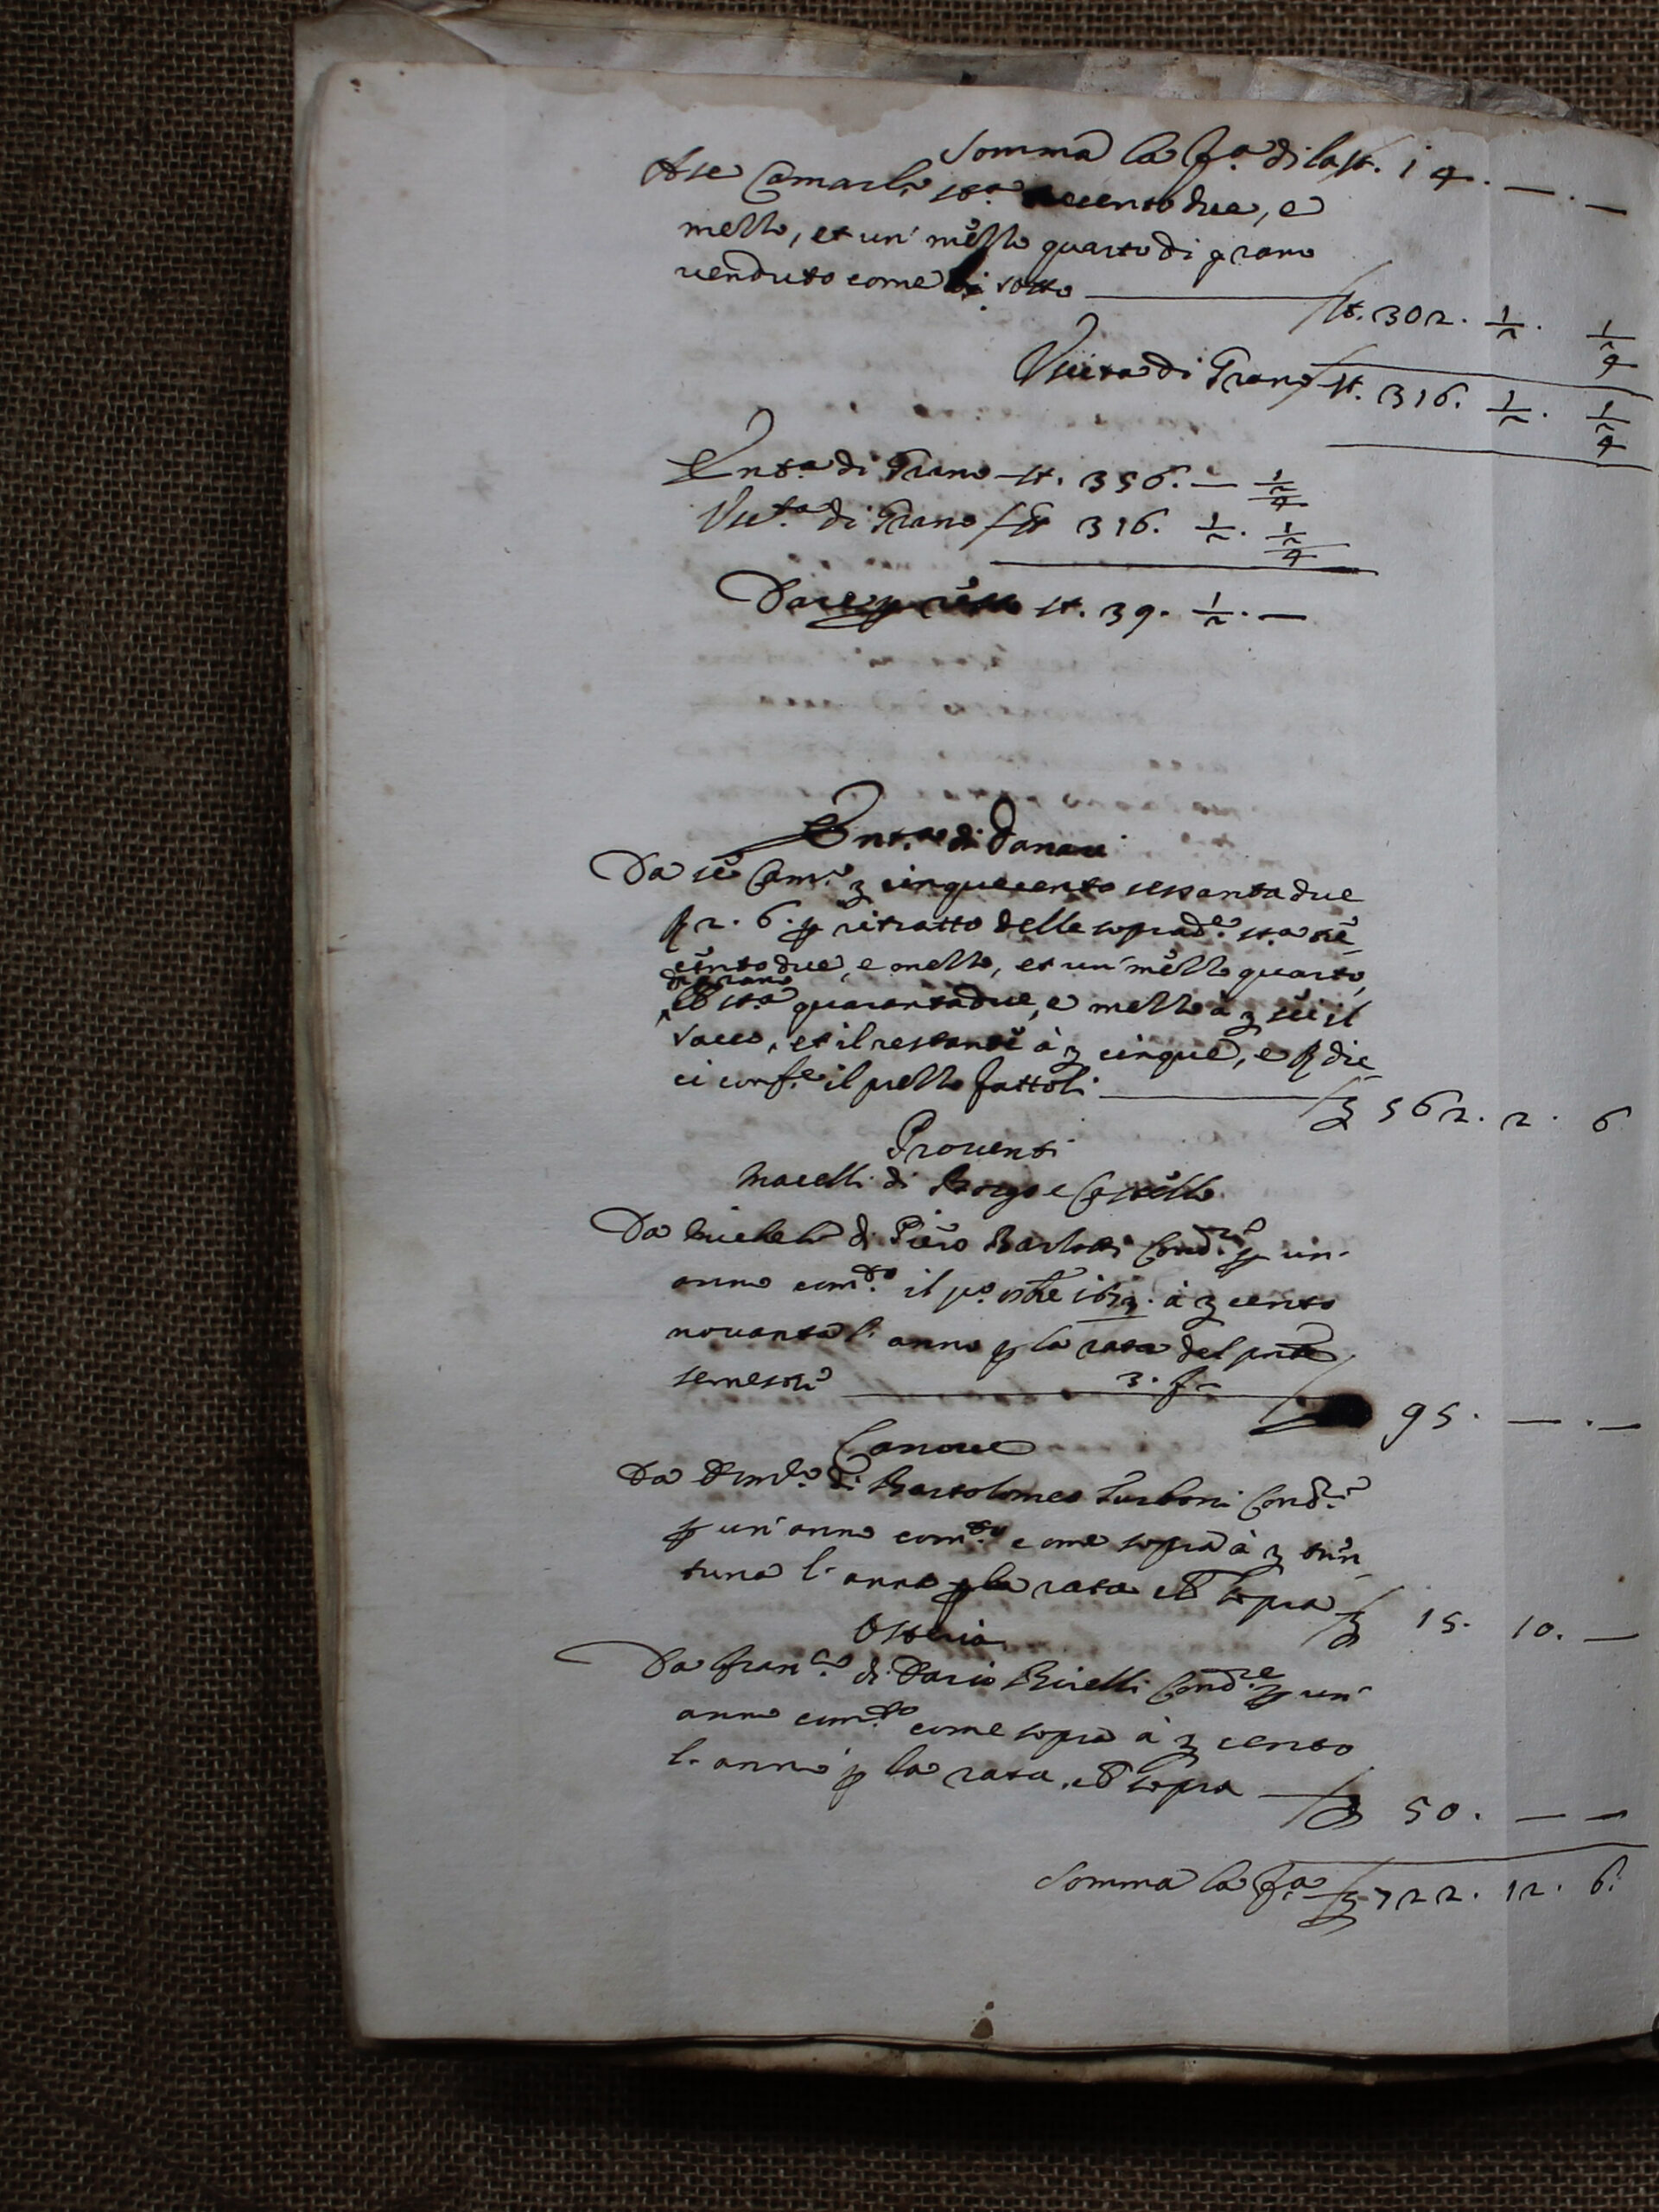 Somma la fa. di la st. 14. — . —
A se Camarl.o sta. trecento due, e
mezzo, et un' mezzo quarto di grano
venduto come di sotto — st. 302. 1/2. 1/2/4
Uscita di Grano st. 316. 1/2. 1/2/4
Ent.a di Grano st. 356. — 1/2/4
Usc.ta di Grano st 316. 1/2. 1/2/4
Dare p resto st. 39. 1/2. —
Ent.a di Danari
Da se Cam.o £ cinquecento sessanta due
ß 2. 6. p ritratto delle soprad.e sta. tre-
cento due, e mezzo, et un' mezzo quarto,
di grano
sta. quaranta due, e mezzo à £ sei il
sacco, et il restante à £ cinque, e ß die-
ci conf.e il prezzo fattoli — £ 562. 2. 6
Proventi
Macelli di Borgo e Castello
Da Michele di Piero Cond.re p un'
anno com.to il po. à £ cento
novanta l' anno p la rata del pnte
semestre — 95. — . —
Canove
Da Dom.co di Bartolomeo Cond.re
p un' anno com.to come sopra à £ tren-
tuno l' anno p la rata sopra £ 15. 10. —
Osteria
Da Fran.co di Dario Cond.re p un'
anno com.to come sopra à £ cento
l' anno p la rata sopra — £ 50. — —
Somma la fa. £ 722. 12. 6.